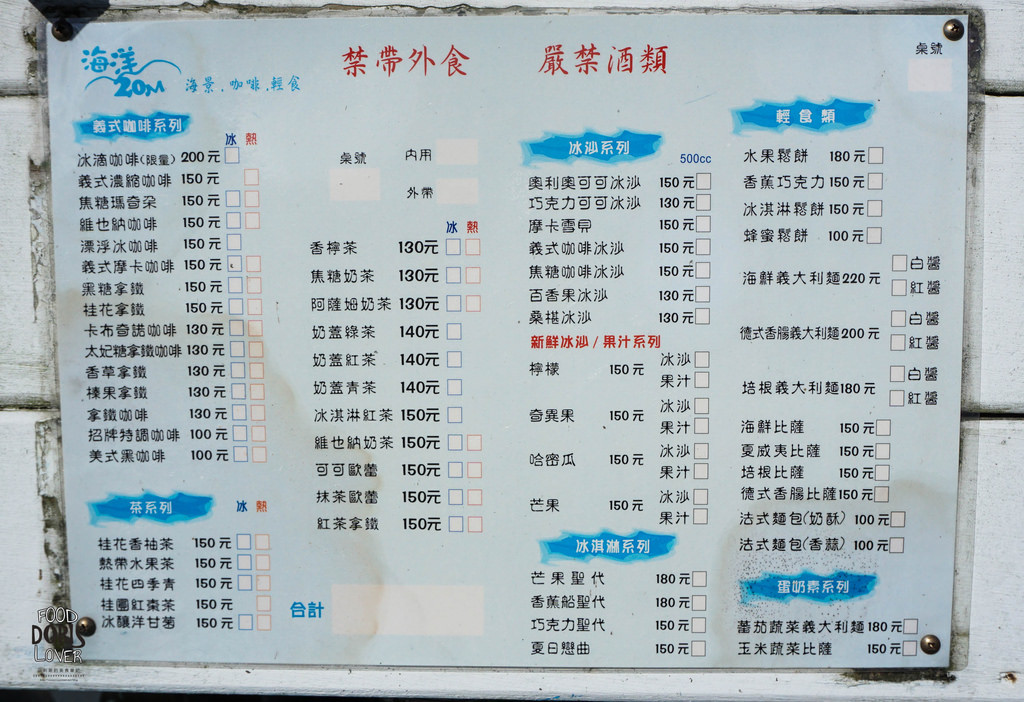 海洋
20M
海景.咖啡.輕食
禁帶外食 嚴禁酒類
桌號
義式咖啡系列
冰 熱
冰滴咖啡(限量) 200元
義式濃縮咖啡 150元
焦糖瑪奇朵 150元
維也納咖啡 150元
漂浮冰咖啡 150元
義式摩卡咖啡 150元
黑糖拿鐵 150元
桂花拿鐵 150元
卡布奇諾咖啡 130元
太妃糖拿鐵咖啡 130元
香草拿鐵 130元
榛果拿鐵 130元
拿鐵咖啡 130元
招牌特調咖啡 100元
美式黑咖啡 100元
茶系列
冰 熱
桂花香柚茶 150元
熱帶水果茶 150元
桂花四季青 150元
桂圓紅棗茶 150元
冰釀洋甘菊 150元
桌號
內用
外帶
冰 熱
香檸茶 130元
焦糖奶茶 130元
阿薩姆奶茶 130元
奶蓋綠茶 140元
奶蓋紅茶 140元
奶蓋青茶 140元
冰淇淋紅茶 150元
維也納奶茶 150元
可可歐蕾 150元
抹茶歐蕾 150元
紅茶拿鐵 150元
合計
冰沙系列
500cc
奧利奧可可冰沙 150元
巧克力可可冰沙 130元
摩卡雪貝 150元
義式咖啡冰沙 150元
焦糖咖啡冰沙 150元
百香果冰沙 130元
桑椹冰沙 130元
新鮮冰沙/果汁系列
檸檬 150元 冰沙
果汁
奇異果 150元 冰沙
果汁
哈密瓜 150元 冰沙
果汁
芒果 150元 冰沙
果汁
冰淇淋系列
芒果聖代 180元
香蕉船聖代 180元
巧克力聖代 150元
夏日戀曲 150元
輕食類
水果鬆餅 180元
香蕉巧克力 150元
冰淇淋鬆餅 150元
蜂蜜鬆餅 100元
海鮮義大利麵 220元 白醬
紅醬
德式香腸義大利麵 200元 白醬
紅醬
培根義大利麵 180元 白醬
紅醬
海鮮比薩 150元
夏威夷比薩 150元
培根比薩 150元
德式香腸比薩 150元
法式麵包(奶酥) 100元
法式麵包(香蒜) 100元
蛋奶素系列
蕃茄蔬菜義大利麵 180元
玉米蔬菜比薩 150元
FOOD
DORIS
LOVER